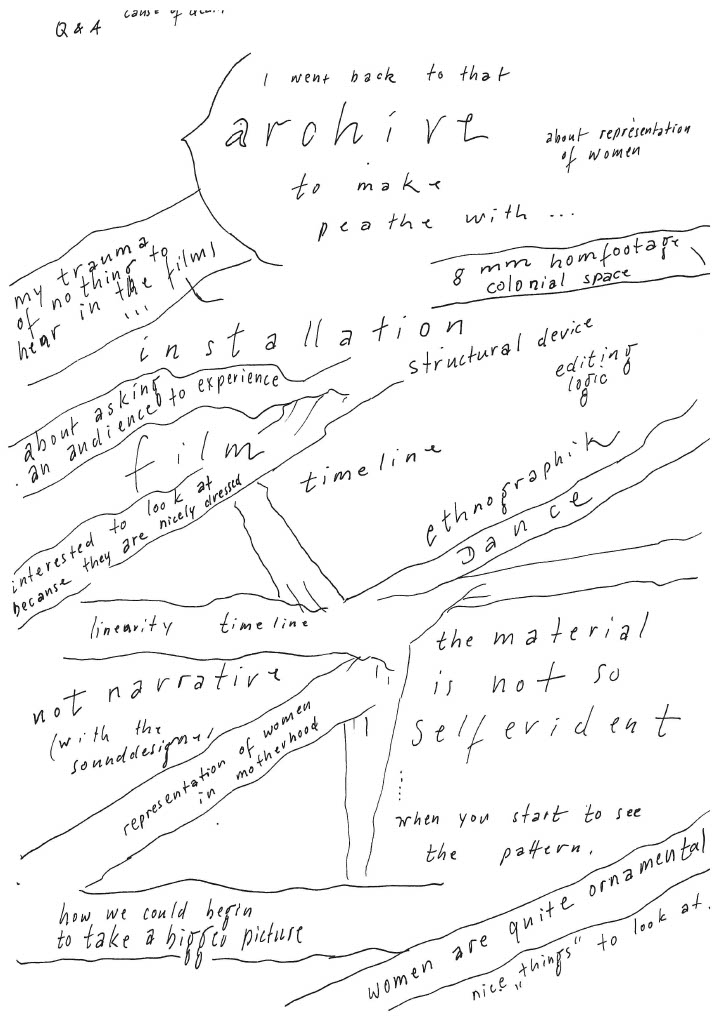 Q & A
cause of
I went back to that
archive
to make
peathe with ...
about representation
of women
my trauma
of nothing to
hear in the films
...
8 mm homfootage
colonial space
installation
structural device
editing
logic
about asking
an audience to experience
film
timeline
interested to look at
because they are nicely dressed
ethnographik
Dance
linearity timeline
the material
is not so
self evident
not narrative
(with the
representation of women
in motherhood
when you start to see
the pattern.
how we could begin
to take a picture
women are quite ornamental
nice „things“ to look at.